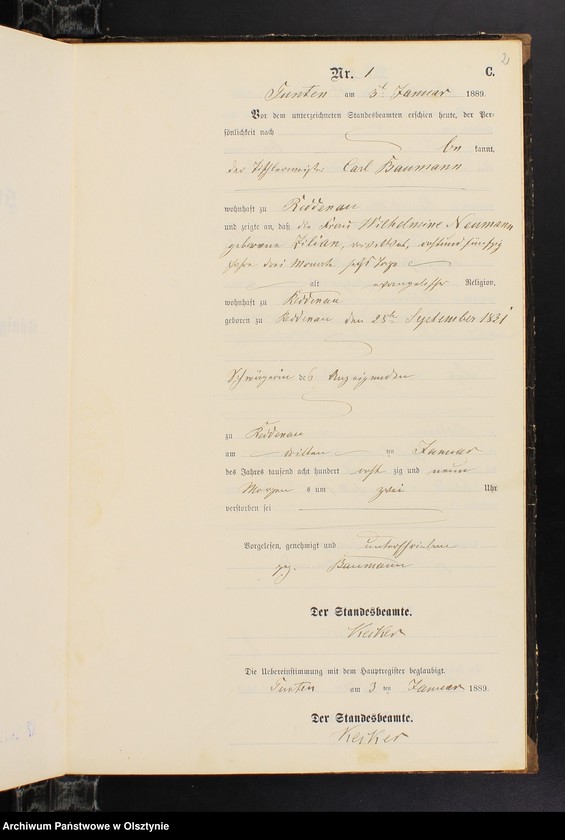 2
Nr. 1 C.
Tunten am 3t Januar 1889.
Vor dem unterzeichneten Standesbeamten erschien heute, der Per-
sönlichkeit nach
be kannt,
der Tischlermeister Carl Baumann
wohnhaft zu Reddenau
und zeigte an, daß die Frau Wilhelmine Neumann
geborene Zilian, acht und fünfzig
Jahre drei Monate sechs Tage
alt evangelischer Religion,
wohnhaft zu Reddenau
geboren zu Reddenau den 25ten September 1831
Schwägerin des Anzeigenden
zu Reddenau
am dritten ten Januar
des Jahres tausend acht hundert acht zig und neun
Morgen s um zwei Uhr
verstorben sei
Vorgelesen, genehmigt und unterschrieben
gez. Baumann
Der Standesbeamte.
Keiker
Die Uebereinstimmung mit dem Hauptregister beglaubigt.
Tunten am 3 ten Januar 1889.
Der Standesbeamte.
Keiker
Archiwum Państwowe w Olsztynie